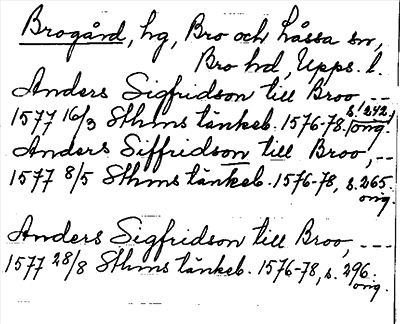 Brogård, hg, Bro och Låssa sn,
Bro hd, Upps. l.
Anders Sigfridson till Broo, ---
1577 16/3 Sthms tänkeb. 1576-78, s. 242, orig.
Anders Siffridson till Broo, ---
1577 8/5 Sthms tänkeb. 1576-78, s. 265. orig.
Anders Sigfridson till Broo, ---
1577 28/8 Sthms tänkeb. 1576-78, s. 296. orig.